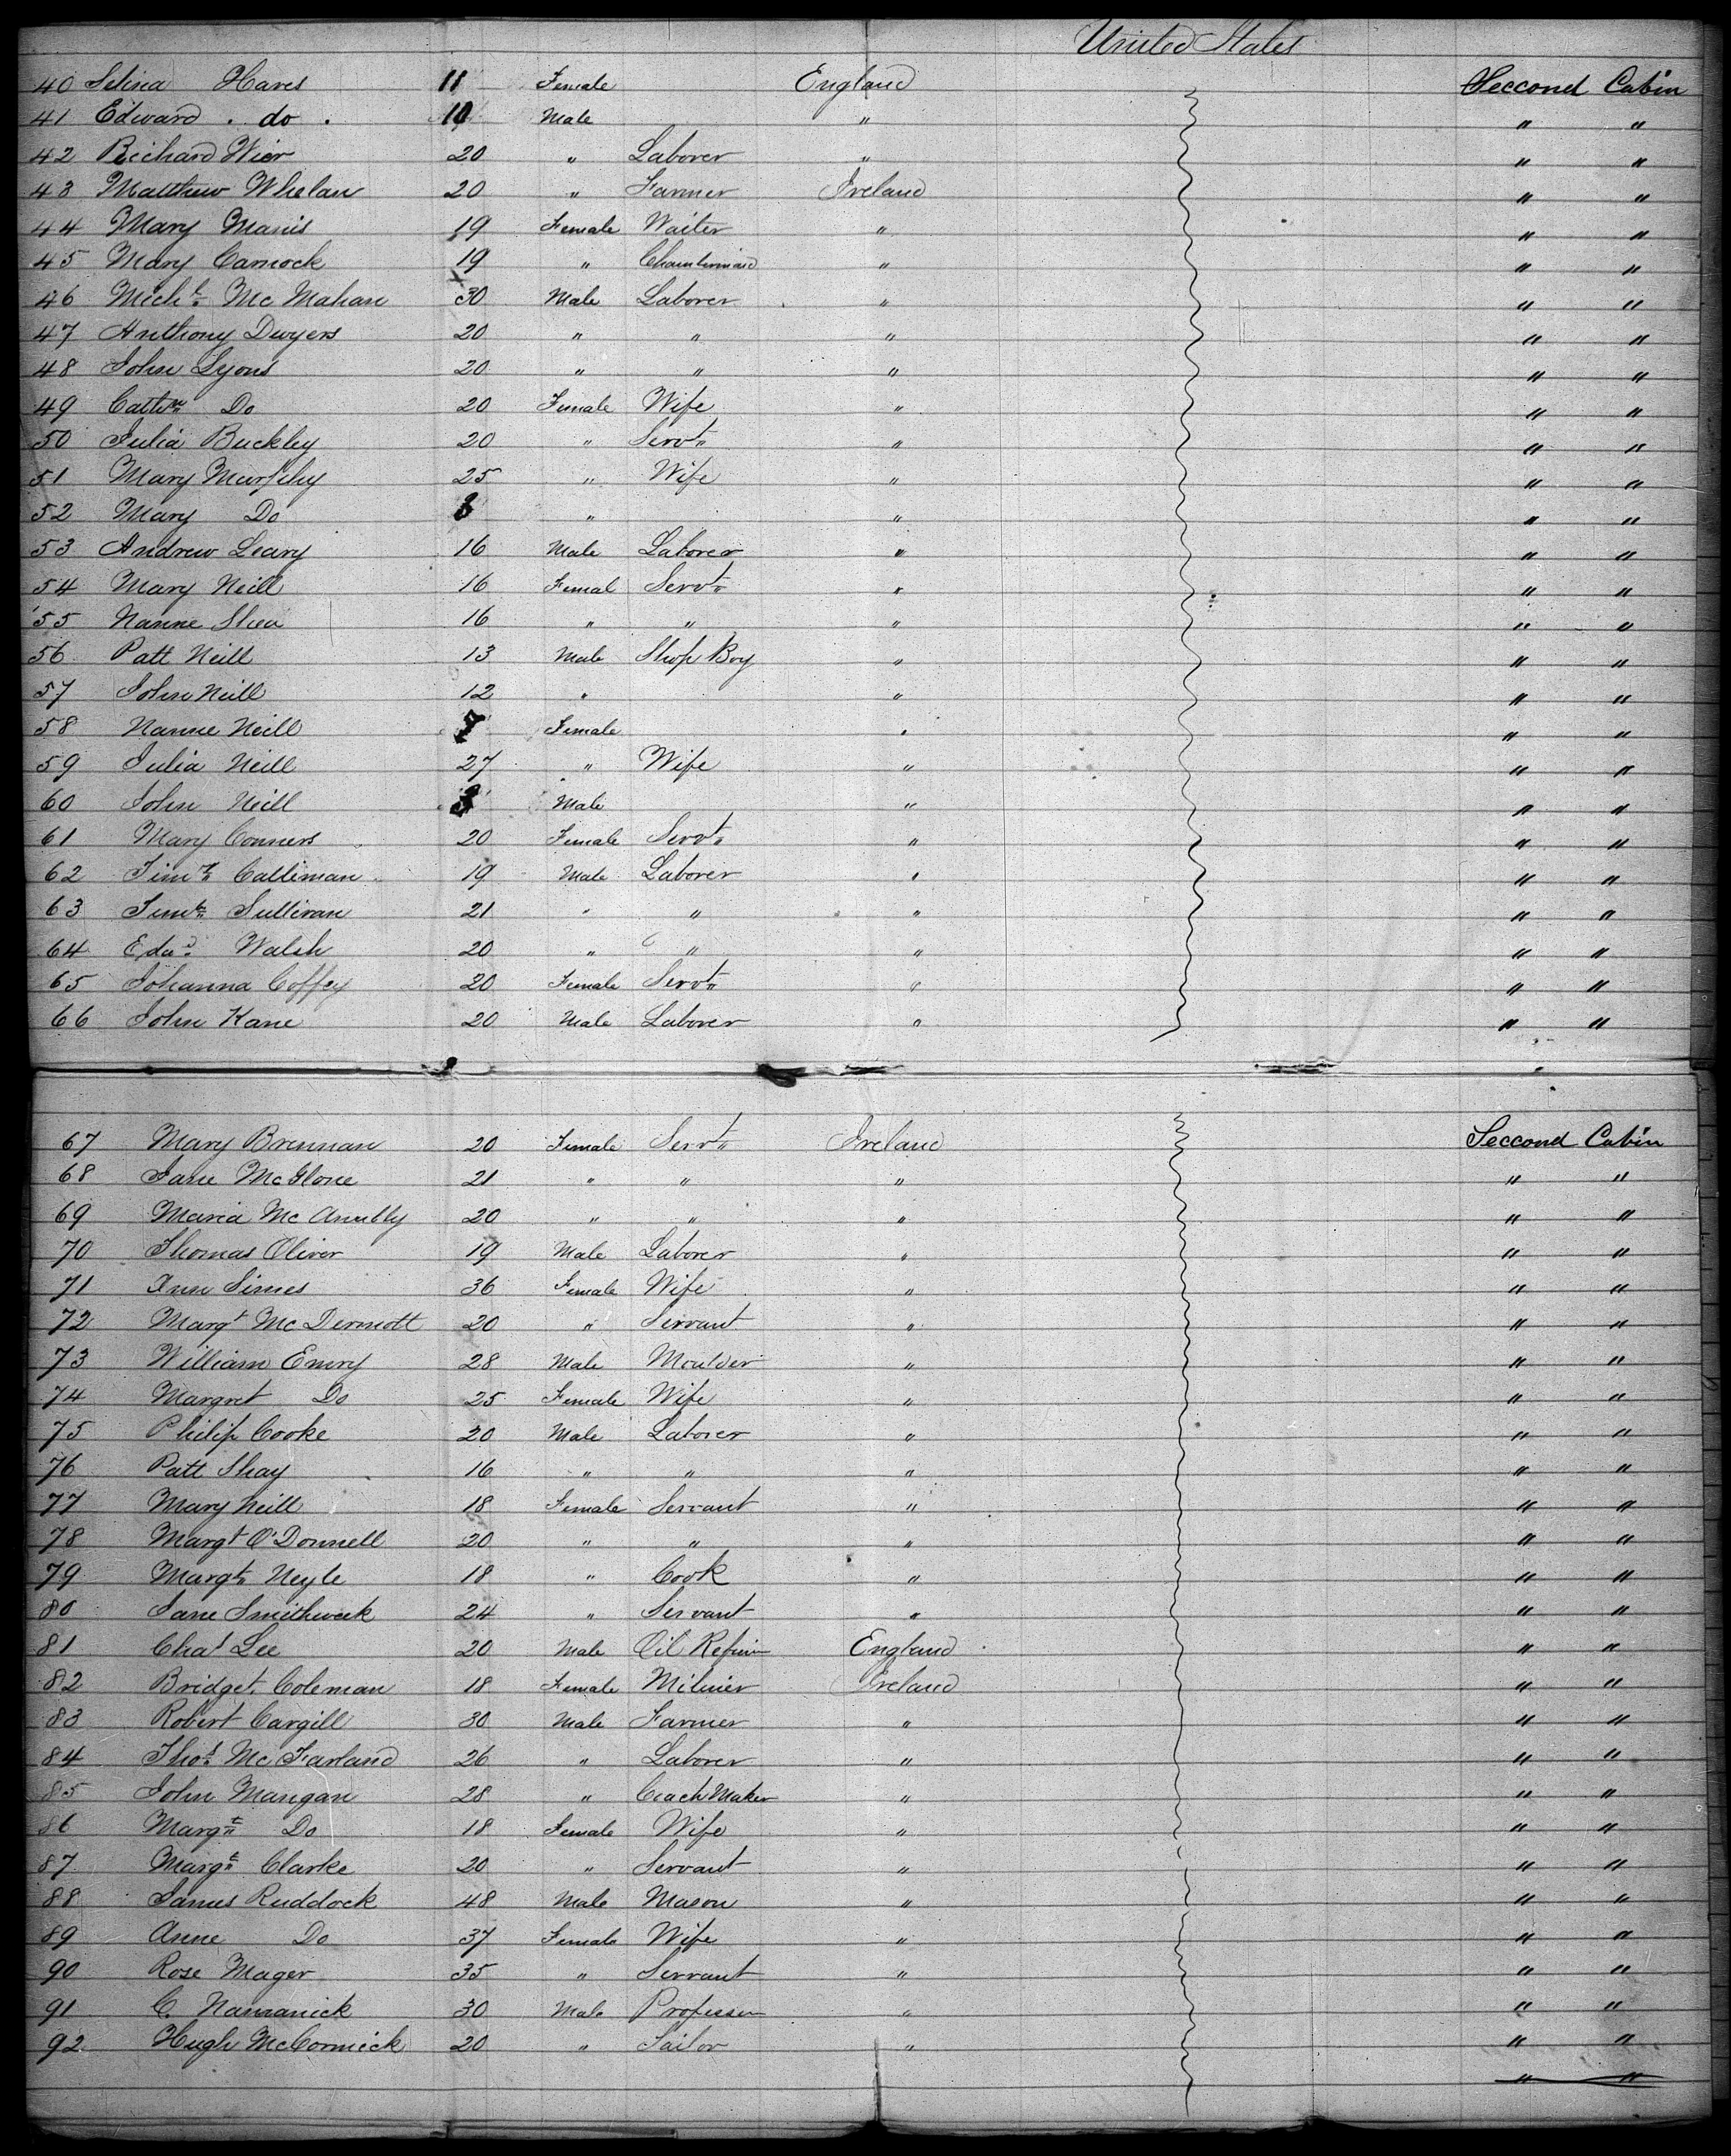 United States
40 Selina Hares 11 Female England Seccond Cabin
41 Edward . do . 10 Male " " "
42 Richard Wier 20 " Laborer " " "
43 Matthew Whelan 20 " Farmer Ireland " "
44 Mary Manis 19 Female Waiter " " "
45 Mary Carnock 19 " Chambermaid " " "
46 Michl. Mc Mahan 30 Male Laborer " " "
47 Anthony Dwyers 20 " " " " "
48 John Lyons 20 " " " " "
49 Cathn Do 20 Female Wife " " "
50 Julia Buckley 20 " Servt " " "
51 Mary Murphy 25 " Wife " " "
52 Mary Do " " " "
53 Andrew Leary 16 Male Laborer " " "
54 Mary Neill 16 Femal Servt " " "
55 Nanne Shea 16 " " " " "
56 Patt Neill 13 Male Shop Boy " " "
57 John Neill 12 " " " "
58 Nanne Neill 7 Female " " "
59 Julia Neill 27 " Wife " " "
60 John Neill Male " " "
61 Mary Conners 20 Female Servt " " "
62 Timy Calliman 19 Male Laborer " " "
63 Timty Sullivan 21 " " " " "
64 Edwd. Walsh 20 " " " " "
65 Johanna Coffey 20 Female Servt " " "
66 John Kane 20 Male Laborer " " "
67 Mary Brennan 20 Female Servt Ireland Seccond Cabin
68 Jane McGlone 21 " " " " "
69 Maria Mc Anulty 20 " " " " "
70 Thomas Oliver 19 Male Laborer " " "
71 Ann Simes 36 Female Wife " " "
72 Margt Mc Dermott 20 " Servant " " "
73 William Emry 28 Male Moulder " " "
74 Margret Do 25 Female Wife " " "
75 Philip Cooke 20 Male Laborer " " "
76 Patt Shay 16 " " " " "
77 Mary Neill 18 Female Servant " " "
78 Margt O'Donnell 20 " " " " "
79 Margt Neyle 18 " Cook " " "
80 Jane Smithweek 24 " Servant " " "
81 Chas Lee 20 Male Oil Refiner England " "
82 Bridget Coleman 18 Female Miliner Ireland " "
83 Robert Cargill 30 Male Farmer " " "
84 Thos. Mc Farland 26 " Laborer " " "
85 John Mangan 28 " Coach Maker " " "
86 Margt Do 18 Female Wife " " "
87 Margt Clarke 20 " Servant " " "
88 James Ruddock 48 Male Mason " " "
89 Anne Do 37 Female Wife " " "
90 Rose Mager 35 " Servant " " "
91 C. 30 Male Professer " " "
92 Hugh McCormick 20 " Sailor " " "
" "